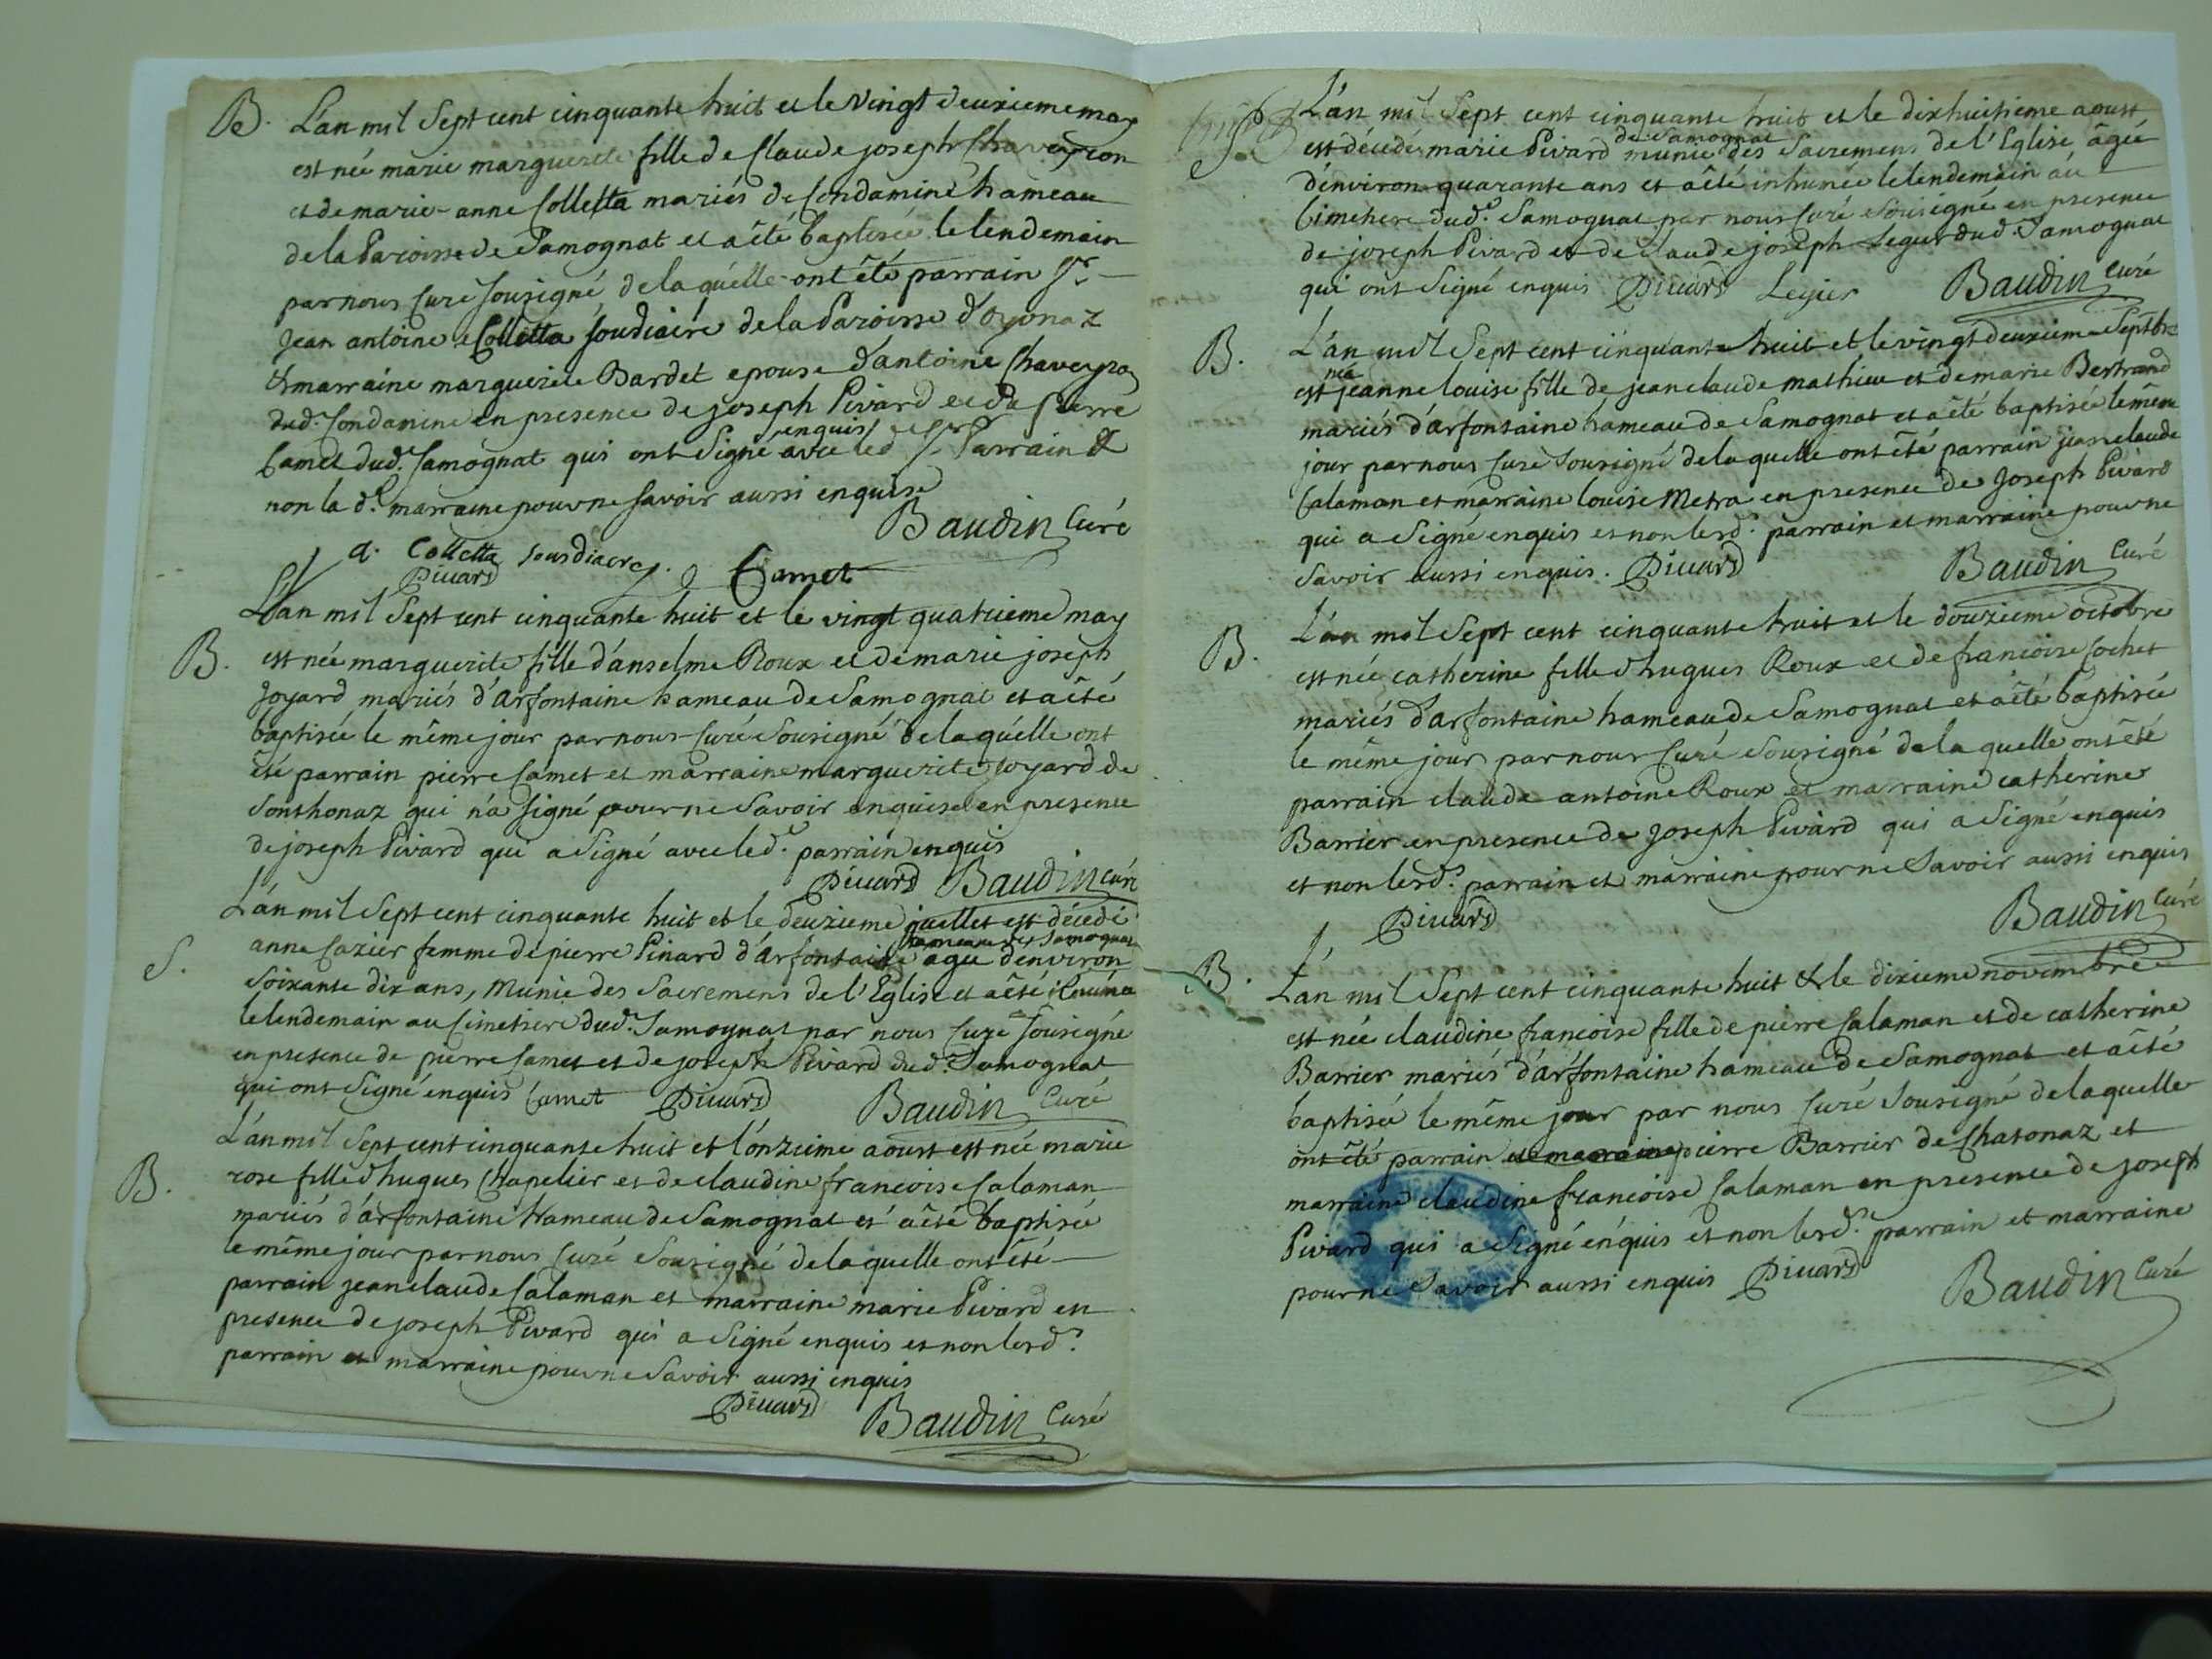 B. L'an mil Sept cent cinquante huit et le vingt deuxieme may
est née marie marguerite fille de Claude joseph Chaveyron
et de marie-anne Colletta mariés de Condamine hameau
de la Paroisse de Samognat et a êté baptisée le lendemain
par nous Curé sousigné de laquélle ont êté parrain Sr.
Jean antoine Colletta soudiacre de la Paroisse d'oyonaz
& marraine marguerite Bardet epouse d'antoine Chaveyron
dud. Condamine en presence de joseph Pivard et de pierre
enquis
Camet dud. Samognat qui ont Signé avec led Sr. Parrain &
non la de. marraine pour ne savoir aussi enquise
Baudin Curé
a. Colletta sousdiacre
Pivard Camet
L'an mil Sept cent cinquante huit et le vingt quatrieme may
B. est née marguerite fille d'anselme Roux et de marie joseph
Joyard mariés d'arfontaine hameau de Samognat et a êté
baptisée le même jour par nous Curé Sousigné de laquélle ont
êté parrain pierre Camet et marraine marguerite joyard de
Sonthonaz qui n'a signé pour ne savoir enquise en presence
de joseph Pivard qui a Signé avec led. parrain enquis
Pivard Baudin Curé
L'an mil Sept cent cinquante huit et le deuxieme juellet est décedé
hameau de Samognat
S. anne Cazier femme de pierre Pinard d'arfontaine agée d'environ
Soixante dix ans, munie des Sacremens de l'Eglise et a êté inhumée
le lendemain au Cimetiere dud. Samognat par nous Curé sousigné
en presence de pierre Camet et de joseph Pivard dud. Samognat
qui ont Signé enquis Camet Pivard Baudin Curé
L'an mil Sept cent cinquante huit et l'onzieme aoust est née marie
B. rose fille d'hugues Chapelier et de claudine francoise Calaman
mariés d'arfontaine Hameau de Samognat et a êté baptisée
le même jour par nous Curé Sousigné de laquelle ont êté
parrain jean claude Calaman et marraine marie Pivard en
presence de joseph Pivard qui a Signé enquis et non lesd.
parrain et marraine pour ne savoir aussi enquis
Pivard Baudin Curé
L'an mil Sept cent cinquante huit et le dixhuitieme aoust
de Samognat
S. est décedée marie Pivard munie des Sacremens de l'Eglise âgée
d'environ quarante ans et a êté inhumée le lendemain au
Cimetiere dud. Samognat par nous Curé sousigné en presence
de joseph Pivard et de claude joseph Legier dud. Samognat
qui ont Signé enquis Pivard Legier Baudin Curé
B. L'an mil Sept cent cinquante huit et le vingt deuxieme Septbre
née
est jeanne louise fille de jean claude mathieu et de marie Bertrand
mariés d'arfontaine hameau de Samognat et a êté baptisée le même
jour par nous Curé sousigné de laquelle ont êté parrain jean claude
Calaman et marraine louise Metra en presence de Joseph Pivard
qui a Signé enquis et non lesd. parrain et marraine pour ne
savoir aussi enquis. Pivard Baudin Curé
B. L'an mil Sept cent cinquante huit et le douzieme octobre
est née catherine fille d'hugues Roux et de francoise Cochet
mariés d'arfontaine hameau de Samognat et a êté baptisée
le même jour par nous Curé sousigné de la quelle ont êté
parrain claude antoine Roux et marraine catherine
Barrier en presence de Joseph Pivard qui a Signé enquis
et non lesd. parrain et marraine pour ne savoir aussi enquis
Pivard Baudin Curé
B. L'an mil Sept cent cinquante huit & le dixieme novembre
est née claudine francoise fille de pierre Calaman et de catherine
Barrier mariés d'arfontaine hameau de Samognat et a êté
baptisée le même jour par nous Curé sousigné de laquelle
ont êté parrain et marraine pierre Barrier de Chatonaz et
marraine claudine francoise Calaman en presence de joseph
Pivard qui a Signé enquis et non lesd. parrain et marraine
pour ne savoir aussi enquis Pivard Baudin Curé